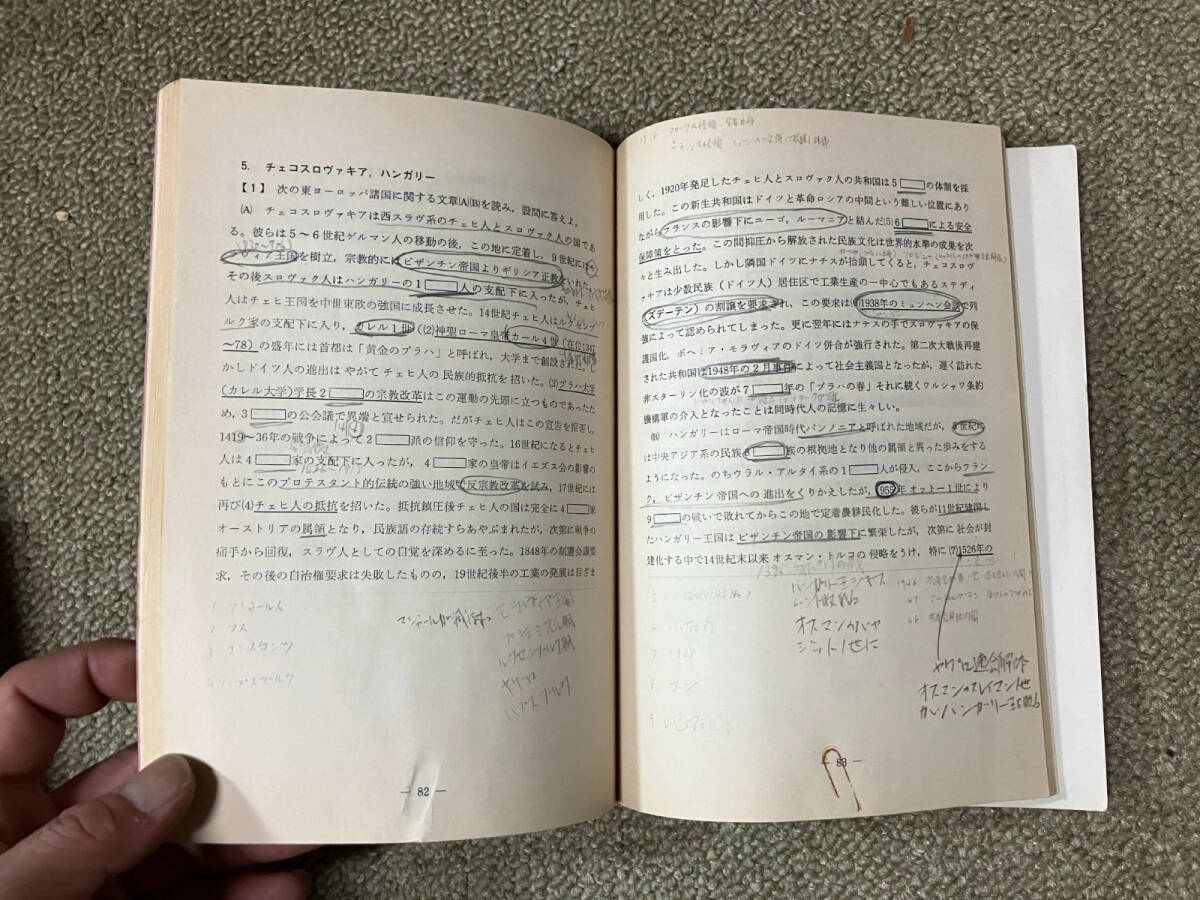 5. チェコスロヴァキア，ハンガリー
【1】 次の東ヨーロッパ諸国に関する文章(A)(B)を読み，設問に答えよ。
(A) チェコスロヴァキアは西スラヴ系のチェヒ人とスロヴァク人の国であ
る。彼らは5～6世紀ゲルマン人の移動の後，この地に定着し，9世紀には
ヴィア王国を樹立，宗教的にビザンチン帝国よりギリシア正教をいれた。
その後スロヴァク人はハンガリーの1□人の支配下に入ったが，チェヒ
人はチェヒ王国を中世東欧の強国に成長させた。14世紀チェヒ人はルクセンブ
ルク家の支配下に入り，カレル1世((2)神聖ローマ皇帝カール4世（在位1347
～78）の盛年には首都は「黄金のプラハ」と呼ばれ，大学まで創設された。し
かしドイツ人の進出は やがて チェヒ人の 民族的抵抗を 招いた。(3)プラハ大学
（カレル大学）学長2□の宗教改革はこの運動の先頭に立つものであったた
め，3□の公会議で異端と宣せられた。だがチェヒ人はこの宣告を拒否し，
1419～36年の戦争によって2□派の信仰を守った。16世紀になるとチェヒ
人は4□家の支配下に入ったが，4□家の皇帝はイエズス会の影響の
もとにこのプロテスタント的伝統の強い地域で反宗教改革を試み，17世紀には
再び(4)チェヒ人の抵抗を招いた。抵抗鎮圧後チェヒ人の国は完全に4□家
オーストリアの属領となり，民族語の存続すらあやぶまれたが，次第に戦争の
痛手から回復，スラヴ人としての自覚を深めるに至った。1848年の制憲会議要
求，その後の自治権要求は失敗したものの，19世紀後半の工業の発展は目ざま
2 フス
3 コンスタンツ
4 ハプスブルク
ルクセンブルク朝
ヤゲロ
ハプスブルク
— 82 —
しく，1920年発足したチェヒ人とスロヴァク人の共和国は5□の体制を採
用した。この新生共和国はドイツと革命ロシアの中間という難しい位置にあり
ながらフランスの影響下にユーゴ，ルーマニアと結んだ(5)6□による安全
保障策をとった。この間抑圧から解放された民族文化は世界的水準の成果を次
々と生み出した。しかし隣国ドイツにナチスが抬頭してくると，チェコスロヴ
ァキアは少数民族（ドイツ人）居住区で工業生産の一中心でもあるステディ
（ズデーテン）の割譲を要求され，この要求は1938年のミュンヘン会議で列
強によって認められてしまった。更に翌年にはナチスの手でスロヴァキアの保
護国化，ボヘミア・モラヴィアのドイツ併合が強行された。第二次大戦後再建
された共和国は1948年の2月事件によって社会主義国となったが，遅く訪れた
非スターリン化の波が7□年の「プラハの春」それに続くワルシャワ条約
機構軍の介入となったことは同時代人の記憶に生々しい。
(B) ハンガリーはローマ帝国時代パンノニアと呼ばれた地域だが，5世紀に
は中央アジア系の民族8□族の根拠地となり他の属領と異った歩みをする
ようになった。のちウラル・アルタイ系の1□人が侵入，ここからフラン
ク，ビザンチン帝国への 進出をくりかえしたが，955年オットー1世により
9□の戦いで敗れてからこの地で定着農耕民化した。彼らが11世紀建国し
たハンガリー王国は ビザンチン帝国の影響下に繁栄したが，次第に 社会が封
建化する中で14世紀末以来 オスマン・トルコの 侵略をうけ，特に(7)1526年の
7 1968
8 フン
オスマンのバヤ
— 83 —